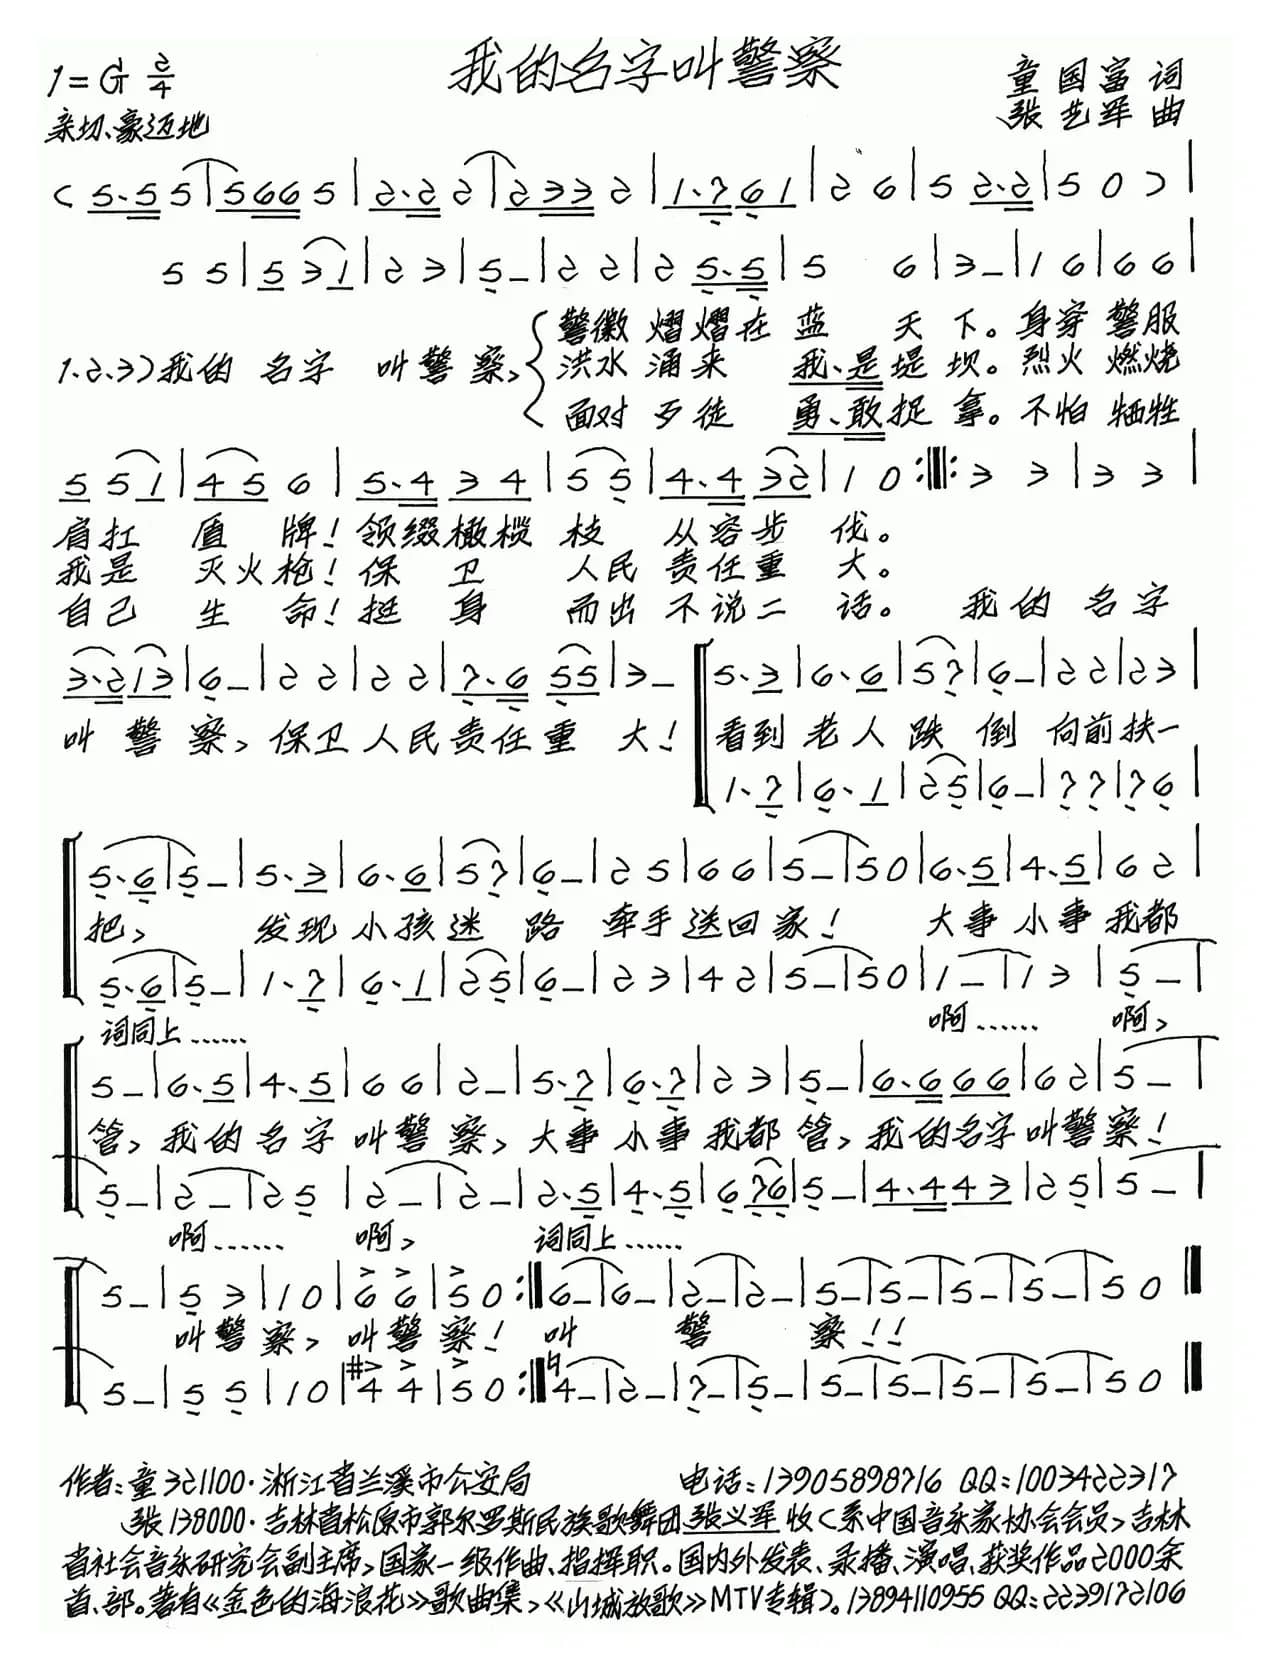 我的名字叫警察
1=G 2/4
童国富 词
亲切、豪迈地
张艺军 曲
( 5·5 5 | 5 6 6 5 | 2·2 2 | 2 3 3 2 | 1·7 6 1 | 2 6 | 5 2·2 | 5 0 ) |
5 5 | 5 3 1 | 2 3 | 5 – | 2 2 | 2 5·5 | 5 6 | 3 – | 1 6 | 6 6 |
警徽 熠熠在 蓝 天 下。身穿 警服
1、2、3)我的 名字 叫警 察,洪水 涌来 我、是堤 坝。烈火 燃烧
面对 歹徒 勇、敢捉 拿。不怕 牺牲
5 5 1 | 4 5 6 | 5·4 3 4 | 5 5 | 4·4 3 2 | 1 0 :‖: 3 3 | 3 3 |
肩扛 盾 牌!领缀橄榄 枝 从容步 伐。
我是 灭火枪!保 卫 人民 责任重 大。
自己 生 命!挺 身 而出 不说二 话。 我的 名字
3·2 1 3 | 6 – | 2 2 | 2 2 | 7·6 5 5 | 3 – 5·3 | 6·6 | 5 7 | 6 – | 2 2 | 2 3 |
叫 警 察,保卫人民责任重 大! 看到 老人 跌 倒 向前扶一
1·7 | 6·1 | 2 5 | 6 – | 7 7 | 7 6 |
5·6 | 5 – | 5·3 | 6·6 | 5 7 | 6 – | 2 5 | 6 6 | 5 – | 5 0 | 6·5 | 4·5 | 6 2 |
把, 发现 小孩迷 路 牵手送回家! 大事 小事 我都
5·6 | 5 – | 1·7 | 6·1 | 2 5 | 6 – | 2 3 | 4 2 | 5 – | 5 0 | 1 – | 1 3 | 5 – |
词同上…… 啊…… 啊,
5 – | 6·5 | 4·5 | 6 6 | 2 – | 5·7 | 6·7 | 2 3 | 5 – | 6·6 6 6 | 6 2 | 5 – |
管,我的名字 叫警察,大事 小事 我都 管,我的名字叫警察!
5 – | 2 – | 2 5 | 2 – | 2 – | 2·5 | 4·5 | 6 7 6 | 5 – | 4·4 4 3 | 2 5 | 5 – |
啊…… 啊, 词同上……
5 – | 5 3 | 1 0 | 6 6 | 5 0 :‖ 6 – | 6 – | 2 – | 2 – | 5 – | 5 – | 5 – | 5 – | 5 0 ‖
叫警 察,叫警 察! 叫 警 察!!
5 – | 5 5 | 1 0 | #4 4 | 5 0 :‖ ♮4 – | 2 – | 7 – | 5 – | 5 – | 5 – | 5 – | 5 – | 5 0 ‖
作者:童321100·浙江省兰溪市公安局 电话:13905898716 QQ:1003422317
张138000·吉林省松原市郭尔罗斯民族歌舞团张义军 收(系中国音乐家协会会员,吉林
省社会音乐研究会副主席,国家一级作曲、指挥职。国内外发表、录播、演唱、获奖作品2000余
首、部。著有《金色的海浪花》歌曲集,《山城放歌》MTV专辑)。13894110955 QQ:2239172106